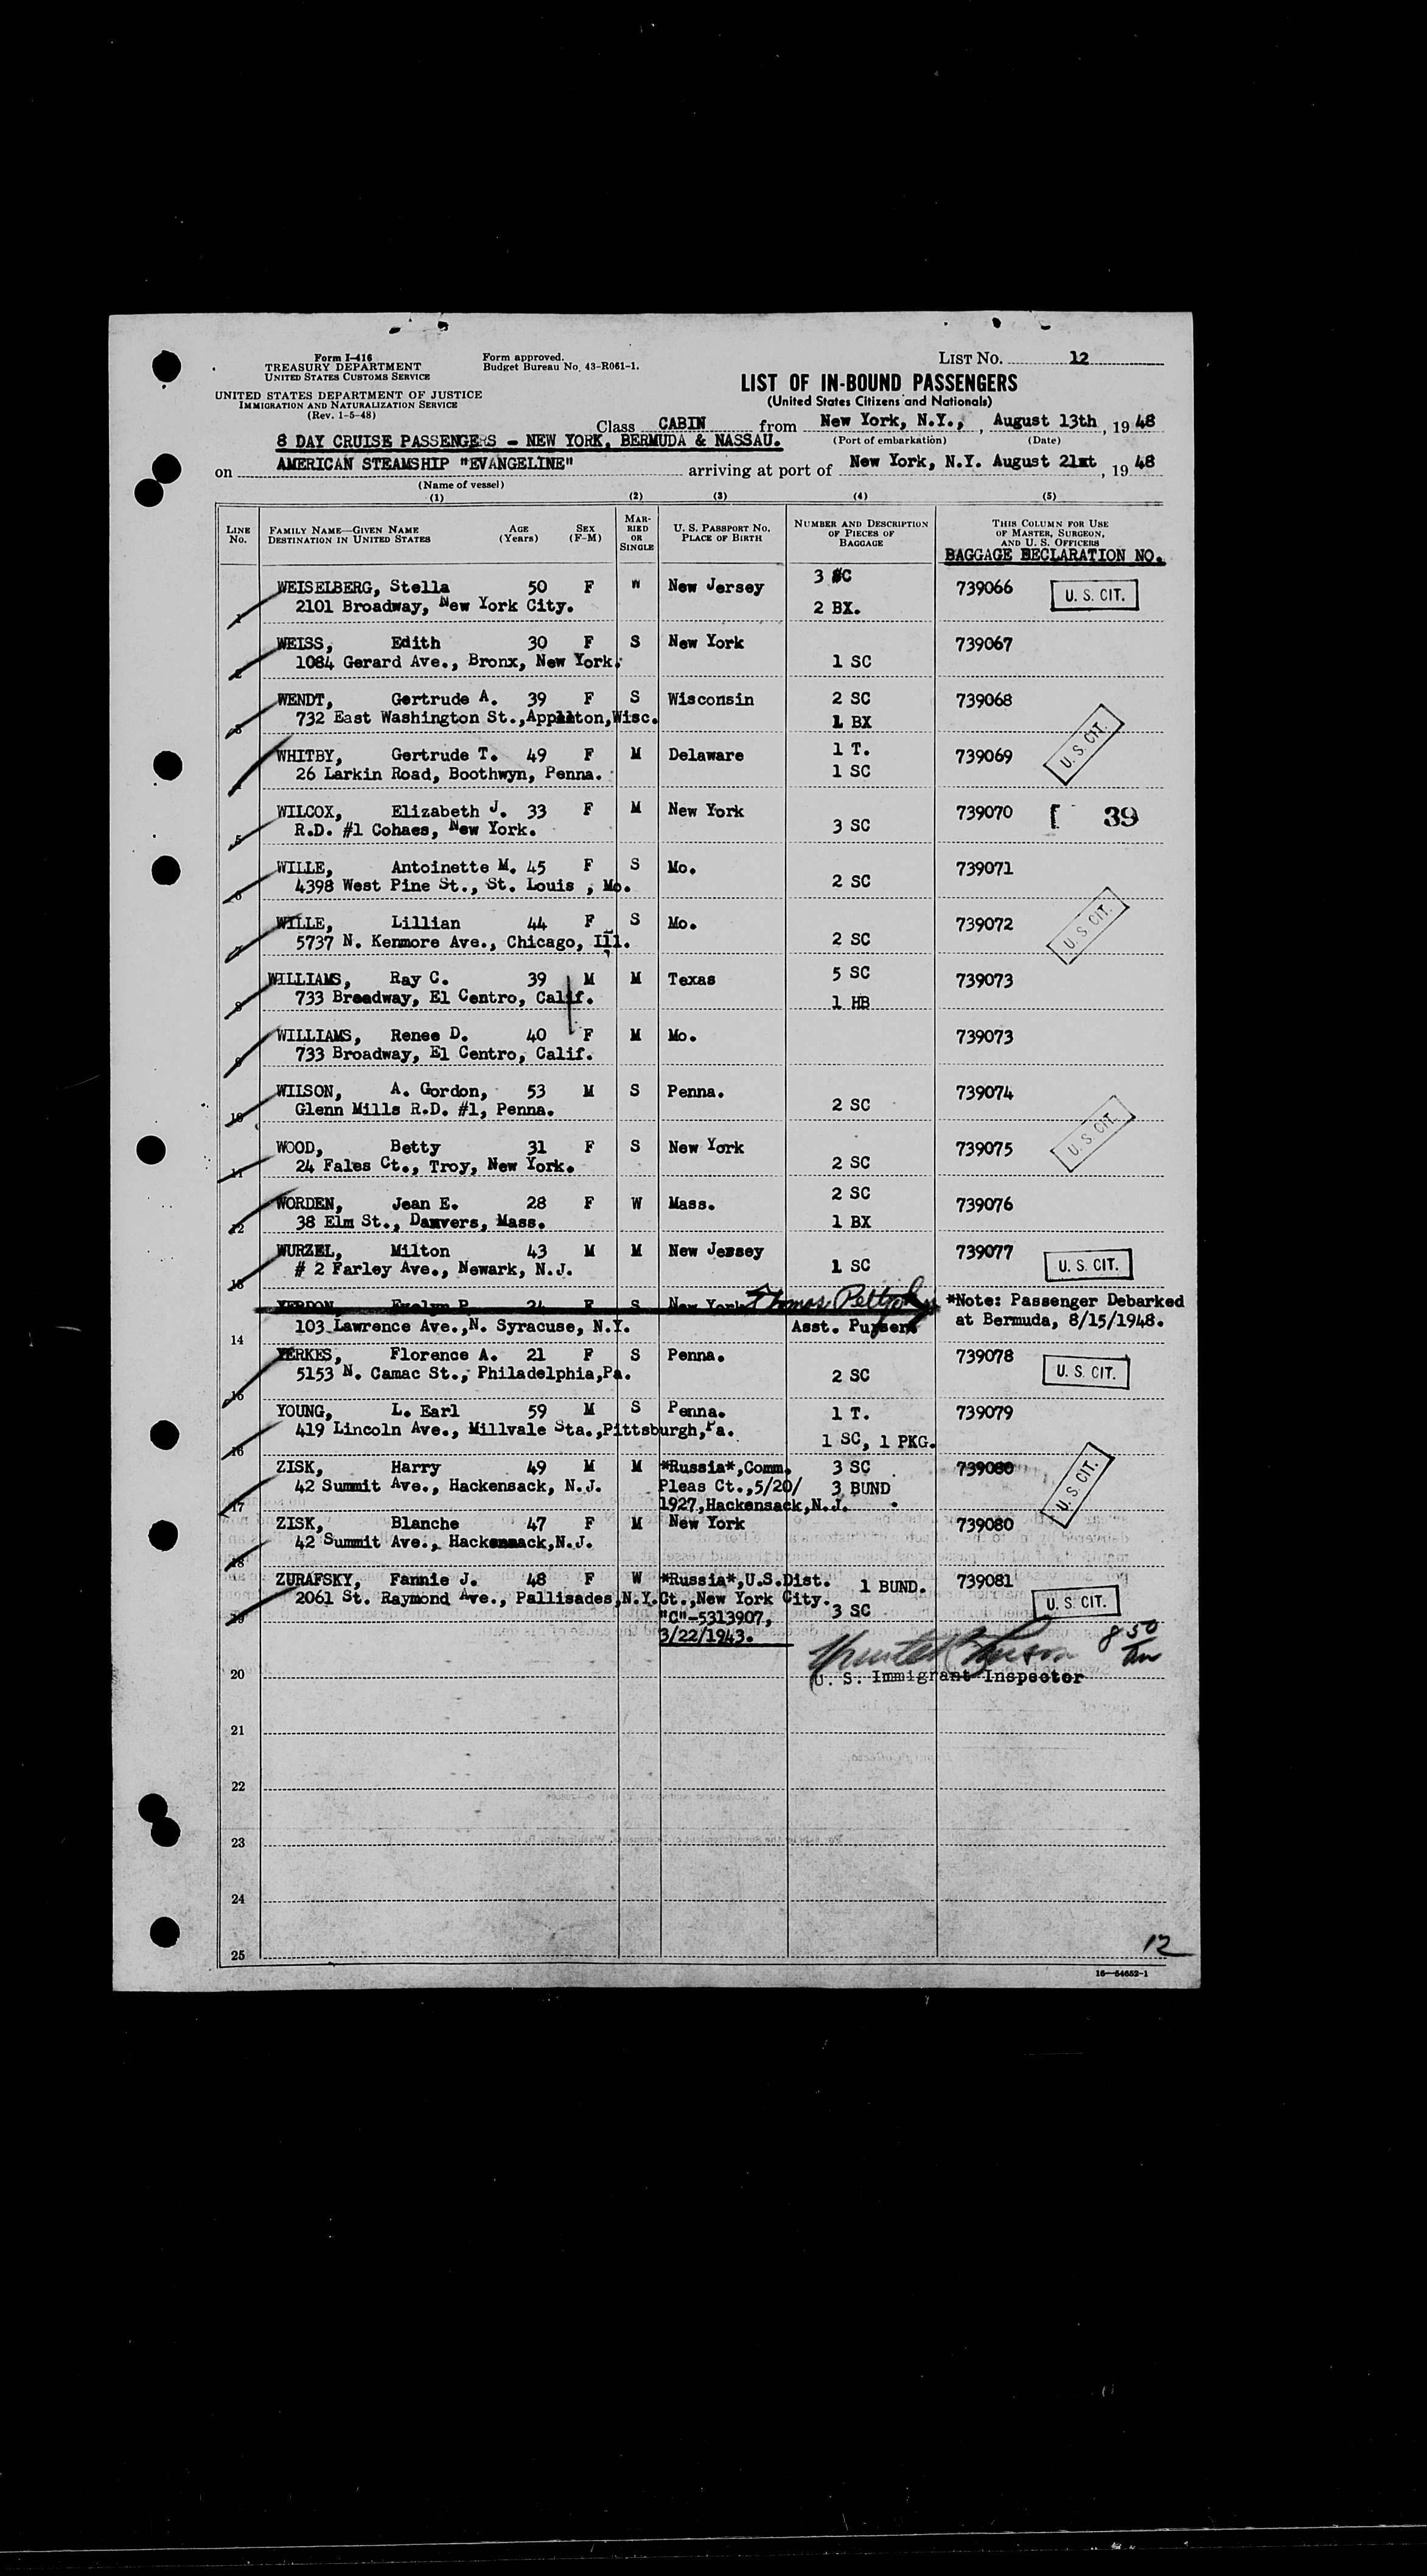 Form I-416
TREASURY DEPARTMENT
UNITED STATES CUSTOMS SERVICE
UNITED STATES DEPARTMENT OF JUSTICE
IMMIGRATION AND NATURALIZATION SERVICE
(Rev. 1-5-48)
Form approved.
Budget Bureau No. 43-R061-1.
LIST NO. 12
LIST OF IN-BOUND PASSENGERS
(United States Citizens and Nationals)
Class CABIN from New York, N.Y., , August 13th , 19 48
8 DAY CRUISE PASSENGERS - NEW YORK, BERMUDA & NASSAU. (Port of embarkation) (Date)
on AMERICAN STEAMSHIP "EVANGELINE" arriving at port of New York, N.Y. August 21st , 19 48
(Name of vessel)
(1) (2) (3) (4) (5)
LINE NO. FAMILY NAME—GIVEN NAME DESTINATION IN UNITED STATES AGE (Years) SEX (F-M) MARRIED OR SINGLE U. S. PASSPORT NO. PLACE OF BIRTH NUMBER AND DESCRIPTION OF PIECES OF BAGGAGE THIS COLUMN FOR USE OF MASTER, SURGEON, AND U. S. OFFICERS
BAGGAGE DECLARATION NO.
1 WEISELBERG, Stella 50 F W New Jersey 3 SC 739066 U. S. CIT.
2101 Broadway, New York City. 2 BX.
2 WEISS, Edith 30 F S New York 739067
1084 Gerard Ave., Bronx, New York. 1 SC
3 WENDT, Gertrude A. 39 F S Wisconsin 2 SC 739068
732 East Washington St., Appleton, Wisc. 1 BX
4 WHITBY, Gertrude T. 49 F M Delaware 1 T. 739069 U. S. CIT.
26 Larkin Road, Boothwyn, Penna. 1 SC
5 WILCOX, Elizabeth J. 33 F M New York 739070 [ 39
R.D. #1 Cohaes, New York. 3 SC
6 WILLE, Antoinette M. 45 F S Mo. 739071
4398 West Pine St., St. Louis , Mo. 2 SC
7 WILLE, Lillian 44 F S Mo. 739072 U. S. CIT.
5737 N. Kenmore Ave., Chicago, Ill. 2 SC
8 WILLIAMS, Ray C. 39 M M Texas 5 SC 739073
733 Broadway, El Centro, Calif. 1 HB
9 WILLIAMS, Renee D. 40 F M Mo. 739073
733 Broadway, El Centro, Calif.
10 WILSON, A. Gordon, 53 M S Penna. 739074
Glenn Mills R.D. #1, Penna. 2 SC
11 WOOD, Betty 31 F S New York 739075 U. S. CIT.
24 Fales Ct., Troy, New York. 2 SC
12 WORDEN, Jean E. 28 F W Mass. 2 SC 739076
38 Elm St., Danvers, Mass. 1 BX
13 WURZEL, Milton 43 M M New Jersey 739077 U. S. CIT.
# 2 Farley Ave., Newark, N.J. 1 SC
14 YERDON, Evelyn P. 24 F S New York Thomas *Note: Passenger Debarked
103 Lawrence Ave., N. Syracuse, N.Y. Asst. Pursers at Bermuda, 8/15/1948.
15 YERKES, Florence A. 21 F S Penna. 739078 U. S. CIT.
5153 N. Camac St., Philadelphia, Pa. 2 SC
16 YOUNG, L. Earl 59 M S Penna. 1 T. 739079
419 Lincoln Ave., Millvale Sta., Pittsburgh, Pa. 1 SC, 1 PKG.
17 ZISK, Harry 49 M M *Russia*, Comm. 3 SC 739080 U. S. CIT.
42 Summit Ave., Hackensack, N.J. Pleas Ct., 5/20/ 3 BUND
1927, Hackensack, N.J.
18 ZISK, Blanche 47 F M New York 739080
42 Summit Ave., Hackensack, N.J.
19 ZURAFSKY, Fannie J. 48 F W *Russia*, U.S. Dist. 1 BUND. 739081 U. S. CIT.
2061 St. Raymond Ave., Pallisades, N.Y. Ct., New York City. 3 SC
"C"-5313907,
3/22/1943.
8 50 Am
20 U. S. Immigrant Inspector
21
22
23
24
25
12
16—54652-1